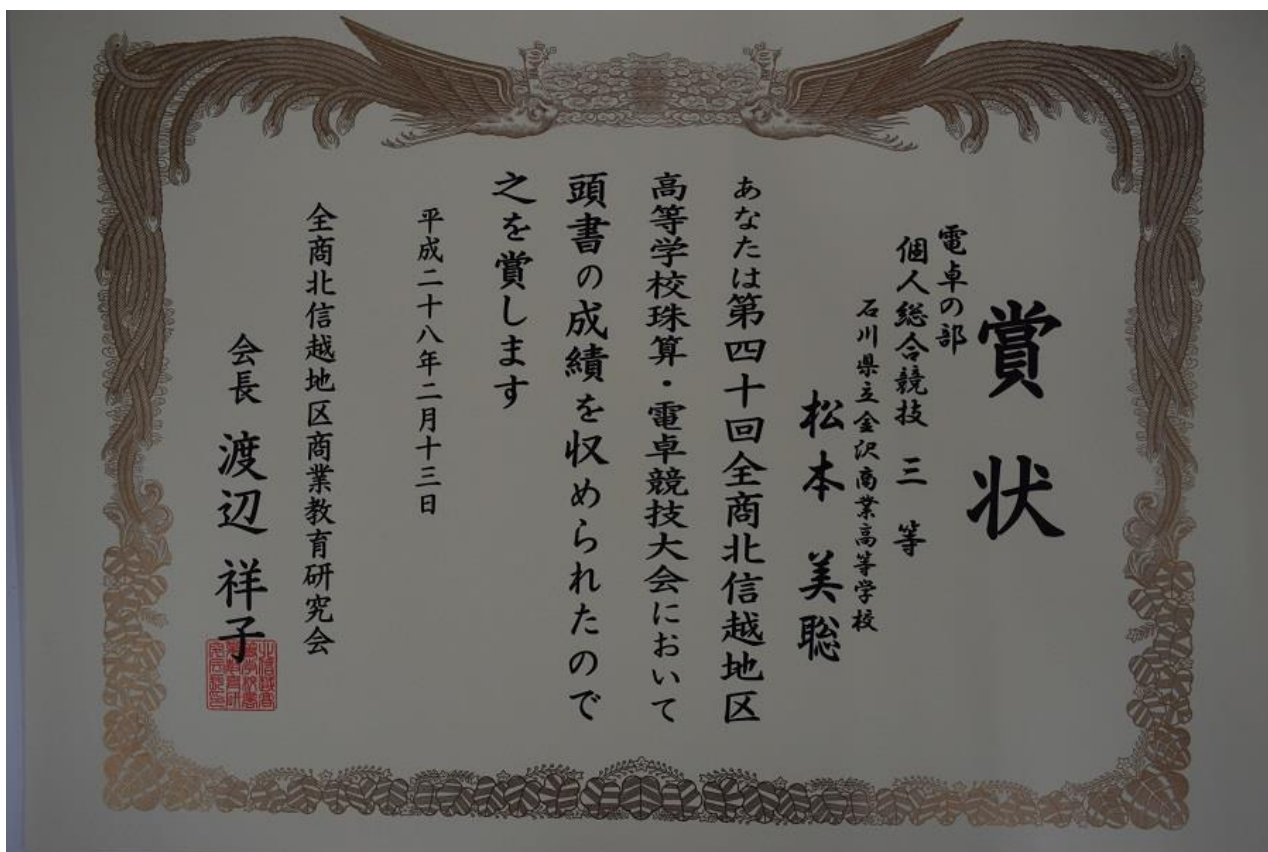 賞状
電卓の部
個人総合競技 三等
石川県立金沢商業高等学校
松本 美聡
あなたは第四十回全商北信越地区
高等学校珠算・電卓競技大会において
頭書の成績を収められたので
之を賞します
平成二十八年二月十三日
全商北信越地区商業教育研究会
会長 渡辺 祥子